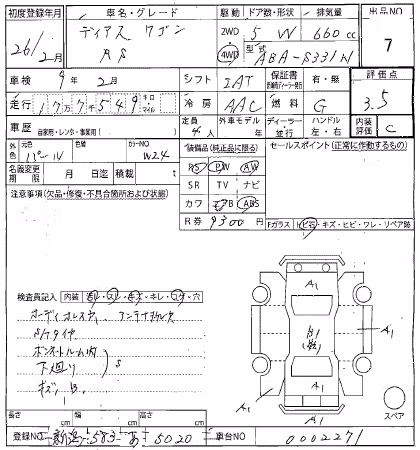 初度登録年月 車名・グレード 駆動 ドア数・形状 排気量 出品NO
26年2月 ディアス ワゴン 2WD 5 W 660cc 7
RS 4WD 型式 ABA-S331N
車検 9年2月 シフト IAT 保証書 有・無 評価点
走行 177千549 キロ マイル 冷房 AAC 燃料 G 3.5
車歴 自家用・レンタ・事業用( ) 定員 4人 外車モデル 年 ディーラー 並行 ハンドル 左・右 内装評価 C
外色 パール 色替 カラーNO W24 装備品(純正品に限る) セールスポイント(正常に作動するもの)
名義変更期限 月 日迄 積載 t PS PW AW
注意事項(欠品・修復・不具合箇所および状態) SR TV ナビ
カワ エアB ABS
R券 9300 Fガラス ヒ石・キズ・ヒビ・ワレ・リペア跡
検査員記入 内装
オーディオレス アンテナ
Sハタイヤ
ボンネットルーム内
下廻り S
キズ
A1
A1
A1
A1
A1
スペア
長さ cm 幅 cm 高さ cm
登録NO 新潟583あ5020 車台NO 0002271